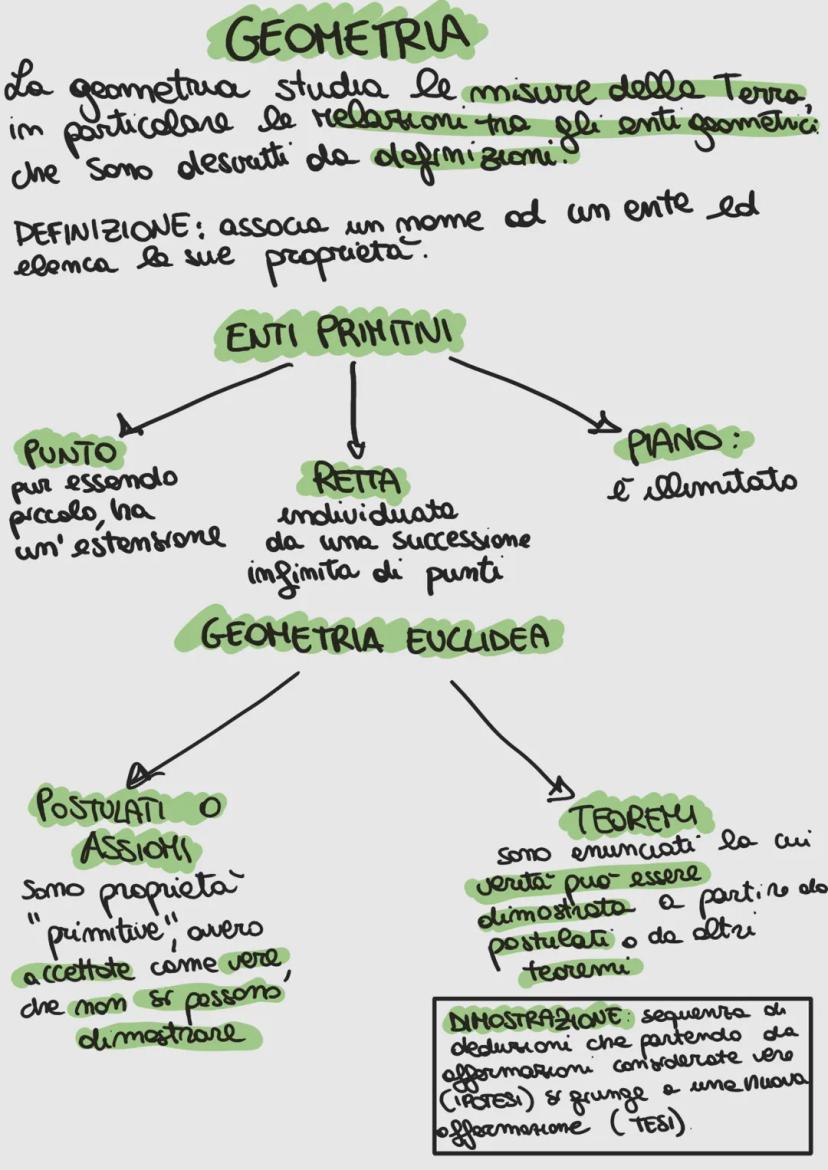 GEOMETRIA
La geometria studia le misure della Terra,
in particolare le relazioni tra gli enti geometrici
che sono descritti da definizioni.
DEFINIZIONE: associa un nome ad un ente ed
elenca le sue proprietà.
ENTI PRIMITIVI
PUNTO
pur essendo
piccolo, ha
un'estensione
RETTA
individuata
da una successione
infinita di punti
PIANO:
è illimitato
GEOMETRIA EUCLIDEA
POSTULATI O
ASSIOMI
sono proprietà
"primitive", ovvero
accettate come vere,
che non si possono
dimostrare
TEOREMI
sono enunciati la cui
verità può essere
dimostrata a partire da
postulati o da altri
teoremi
DIMOSTRAZIONE: sequenza di
deduzioni che partendo da
affermazioni considerate vere
(IPOTESI) si giunge a una nuova
affermazione (TESI).